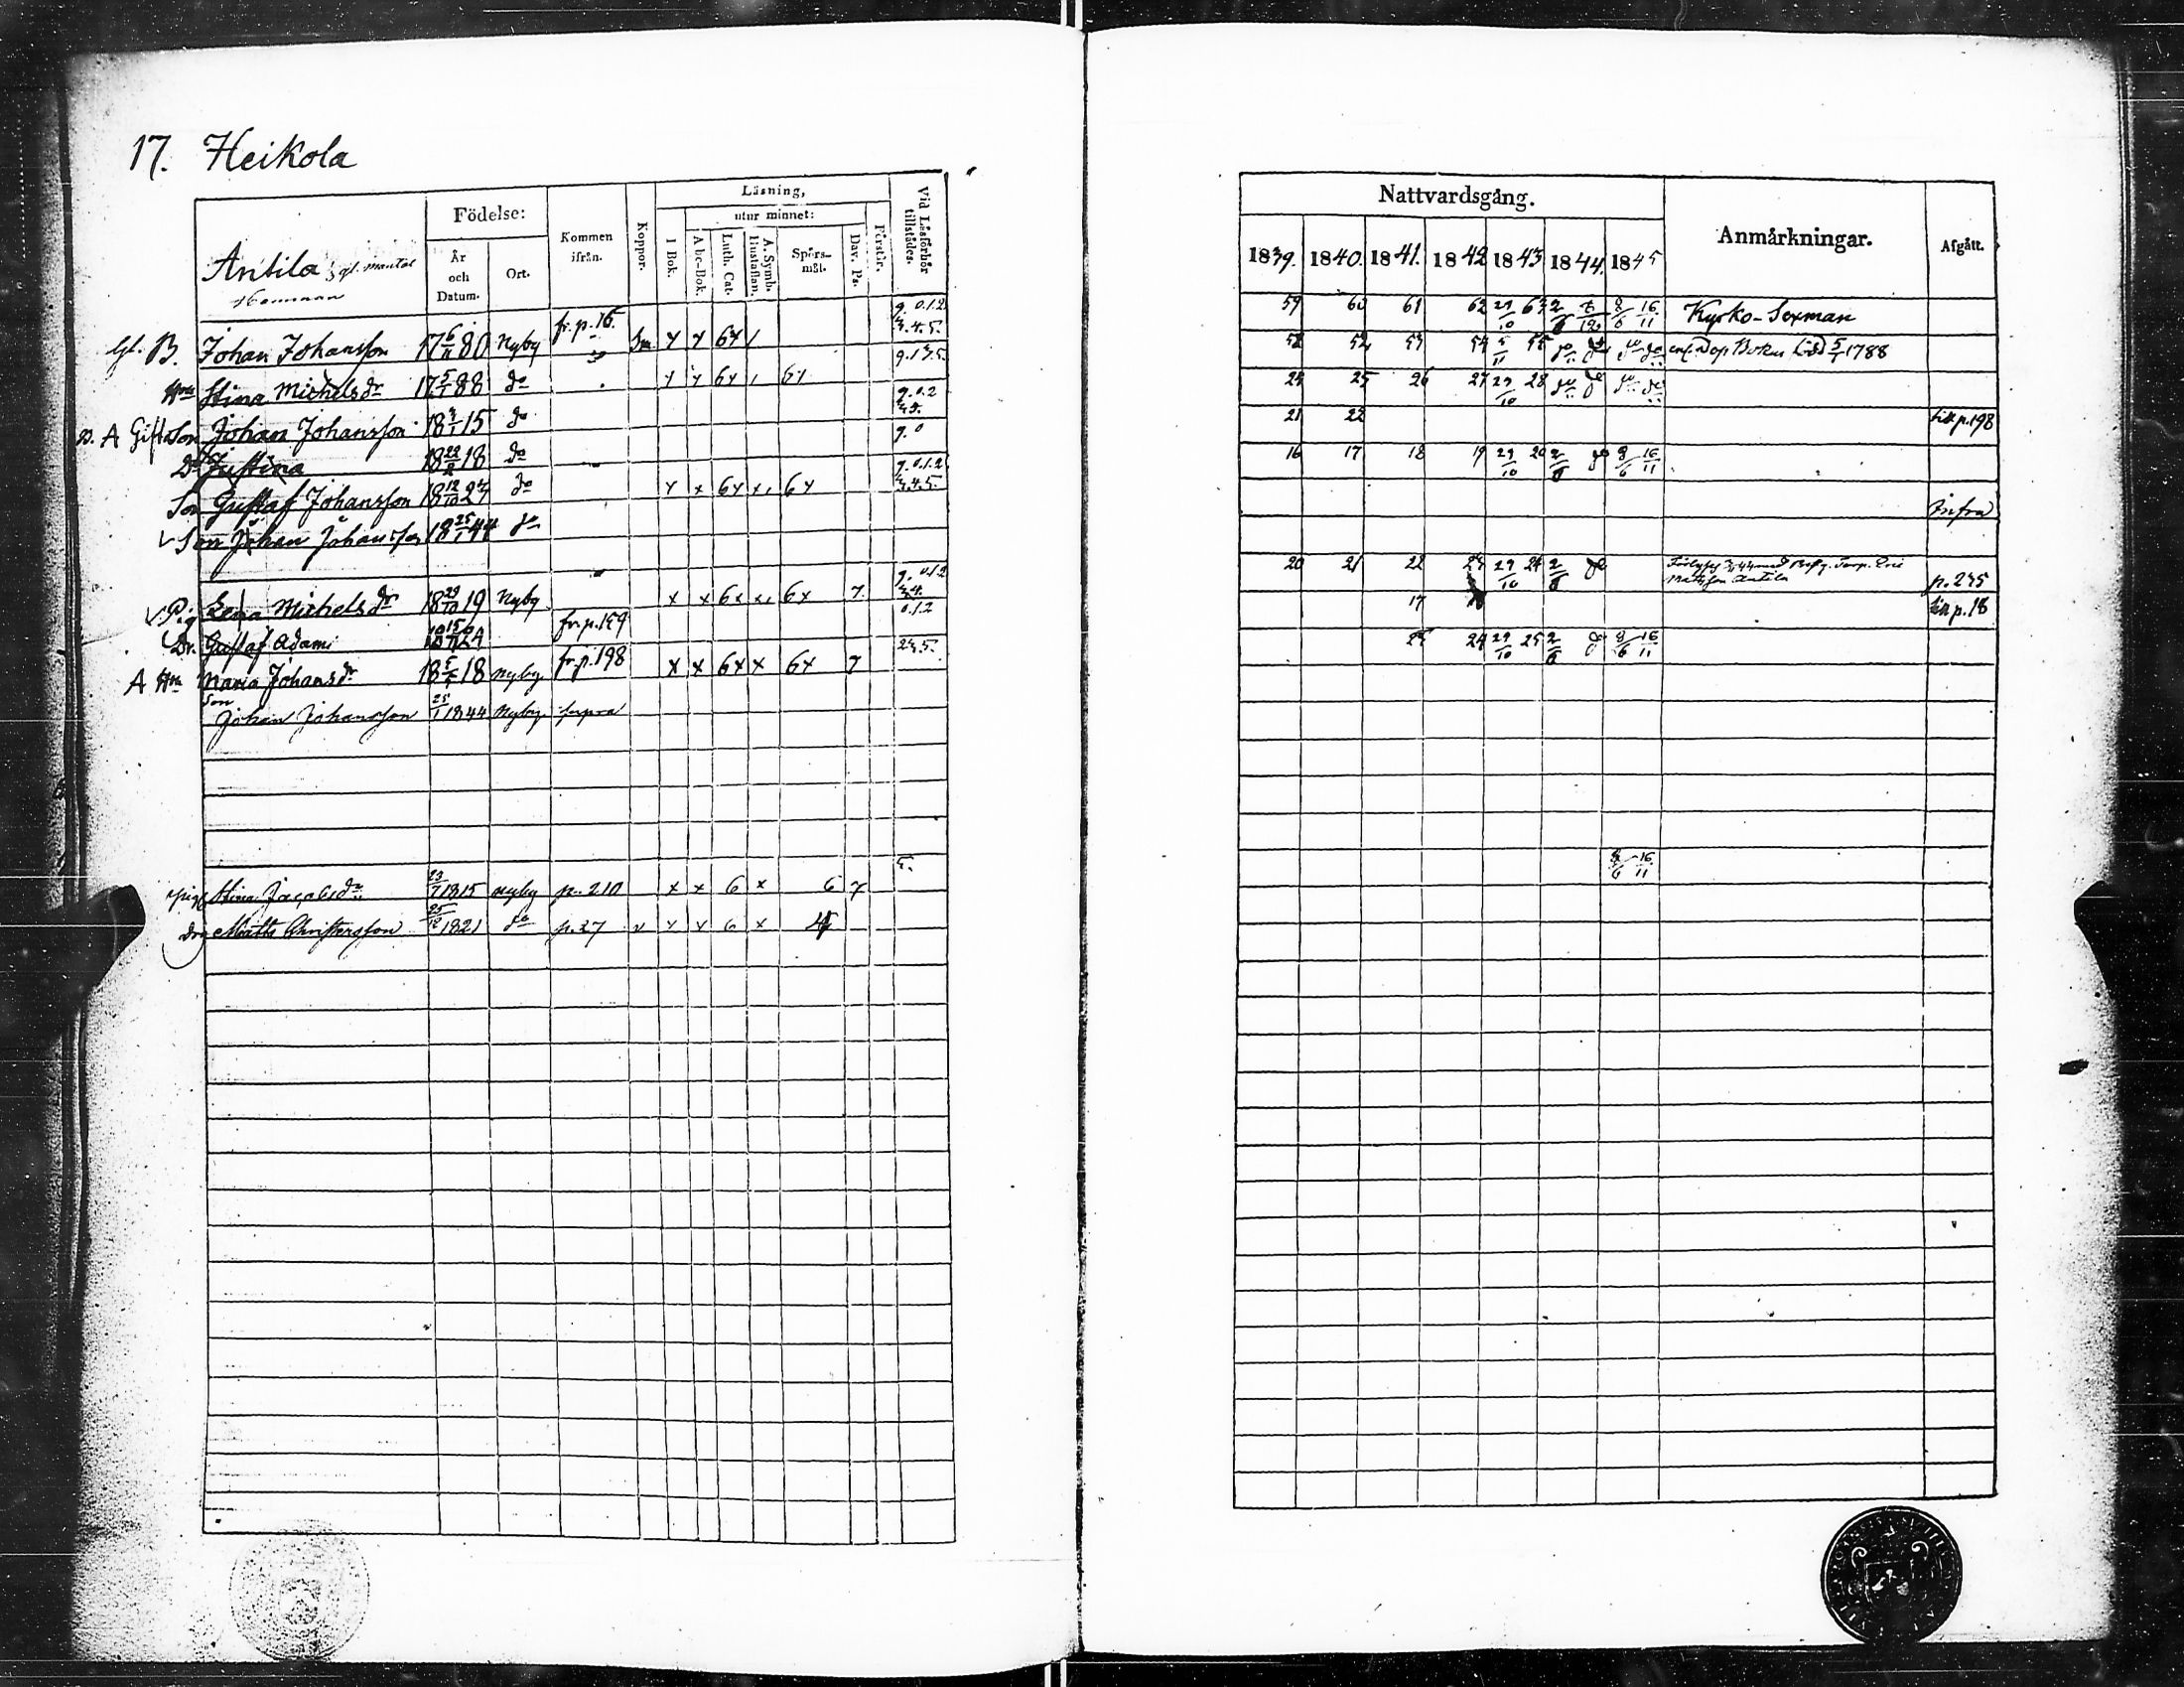 17. Heikola
Antila gl. mantal
Hemman
Födelse:
År och Datum.
Ort.
Kommen ifrån.
Koppor.
Läsning,
I Bok.
utur minnet:
Abc-Bok.
Luth. Cat.
A. Symb. Hustaflan.
Spörs-mål.
Dav. Ps.
Förstår.
Vid Läsförhör tillstädes.
Gl. B. Johan Johansson 17 6/11 80 Nyby fr. p. 16. x x 6x / 9.0.1.2 3.4.5.
Hu Stina Michelsdr 17 5/1 88 do x x 6x / 6x 9.1.3.5
A Gift Son Johan Johansson 18 15 do 9.0.2
Dr Justina 18 22/2 18 do 9.0
Son Gustaf Johansson 18 12/10 24 do x x 6x x 6x 9.0.1.2 3.4.5.
Son Johan Johansson 18 25/1 44 do
Pig Lena Michelsdr 18 29/10 19 Nyby x x 6x x 6x 7 9.0.1.2 3.4.
Dr. Gustaf Adami fr. p. 159 0.1.2
A Hu Maria Johansdr 18 18 Nyby fr. p. 198 x x 6x x 6x 7 2.3.5.
Son Johan Johansson 25/1 1844 Nyby supra
Pig Stina Jacobsdr 23/7 1815 Nyby p. 210 x x 6 x 6 7 5.
Drg Matts Christersson 25/12 1821 do p. 27 v x x 6 x
Nattvardsgång.
Anmärkningar.
Afgått.
1839. 1840. 1841. 1842 1843 1844. 1845
59 60 61 62 29/10 63 2/6 8/6 16/11 Kyrko-Sexman
52 53 54 55 do do do do enl. Dop Boken född 5/1 1788
24 25 26 27 29/10 28 do do do do
21 22 till p. 198
16 17 18 19 29/10 20 2/6 do 8/6 16/11
Infra
20 21 22 23 29/10 24 2/6 do Mattsson Antila p. 235
17 till p. 18
23 24 29/10 25 2/6 do 8/6 16/11
8/6 16/11